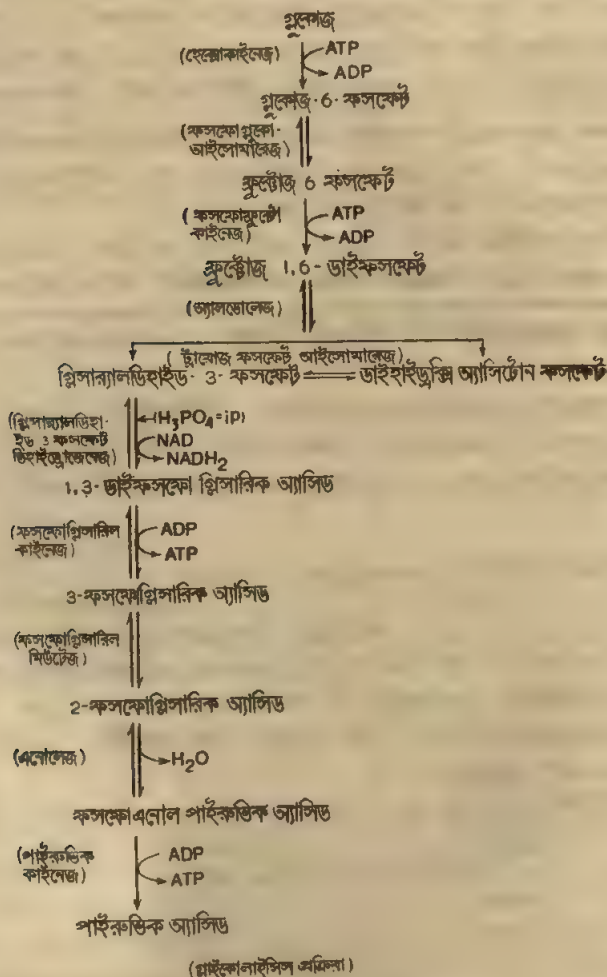 গ্লুকোজ
(হেক্সোকাইনেজ)
ATP
ADP
গ্লুকোজ-6-ফসফেট
(ফসফোগ্লুকো-
আইসোমারেজ)
ফ্রুক্টোজ 6 ফসফেট
(ফসফোফ্রুক্টো
কাইনেজ)
ATP
ADP
ফ্রুক্টোজ 1,6-ডাইফসফেট
(অ্যালডোলেজ)
(ট্রায়োজ ফসফেট আইসোমারেজ)
গ্লিসার‍্যালডিহাইড-3-ফসফেট ডাইহাইড্রক্সি অ্যাসিটোন ফসফেট
(গ্লিসার‍্যালডিহা-
ইড 3 ফসফেট
ডিহাইড্রোজেনেজ)
(H₃PO₄=iP)
NAD
NADH₂
1,3-ডাইফসফো গ্লিসারিক অ্যাসিড
(ফসফোগ্লিসারিল
কাইনেজ)
ADP
ATP
3-ফসফোগ্লিসারিক অ্যাসিড
(ফসফোগ্লিসারিল
মিউটেজ)
2-ফসফোগ্লিসারিক অ্যাসিড
(এনোলেজ)
H₂O
ফসফোএনোল পাইরুভিক অ্যাসিড
(পাইরুভিক
কাইনেজ)
ADP
ATP
পাইরুভিক অ্যাসিড
(গ্লাইকোলাইসিস প্রক্রিয়া)